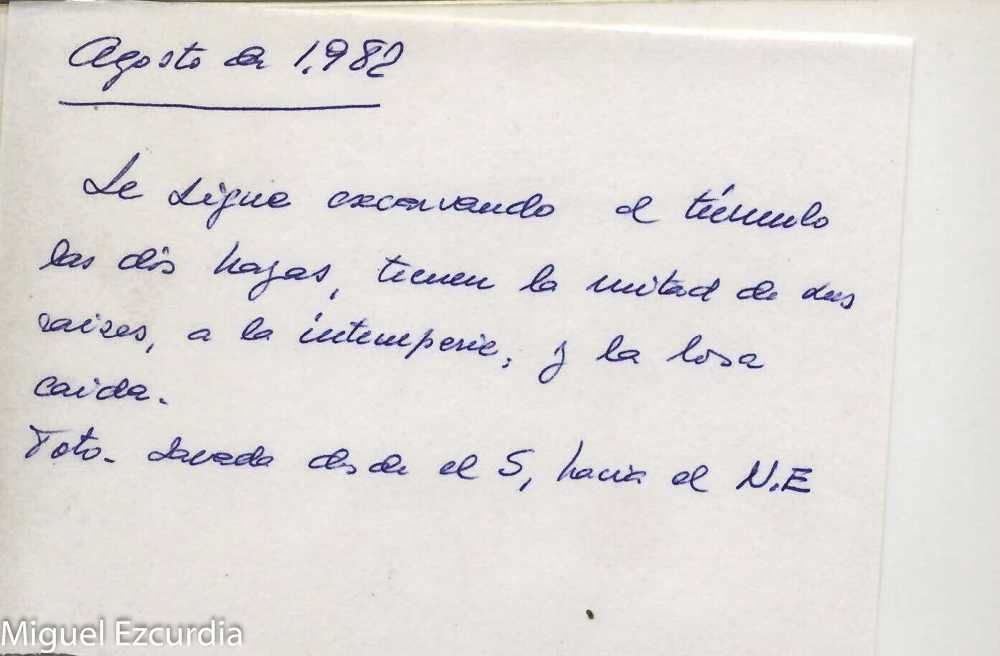 Agosto de 1.982
Se sigue excavando el túmulo
las dos hayas, tienen la mitad de sus
raizes, a la intemperie, y la losa
caida.
Foto- sacada desde el S, hacia el N.E
Miguel Ezcurdia